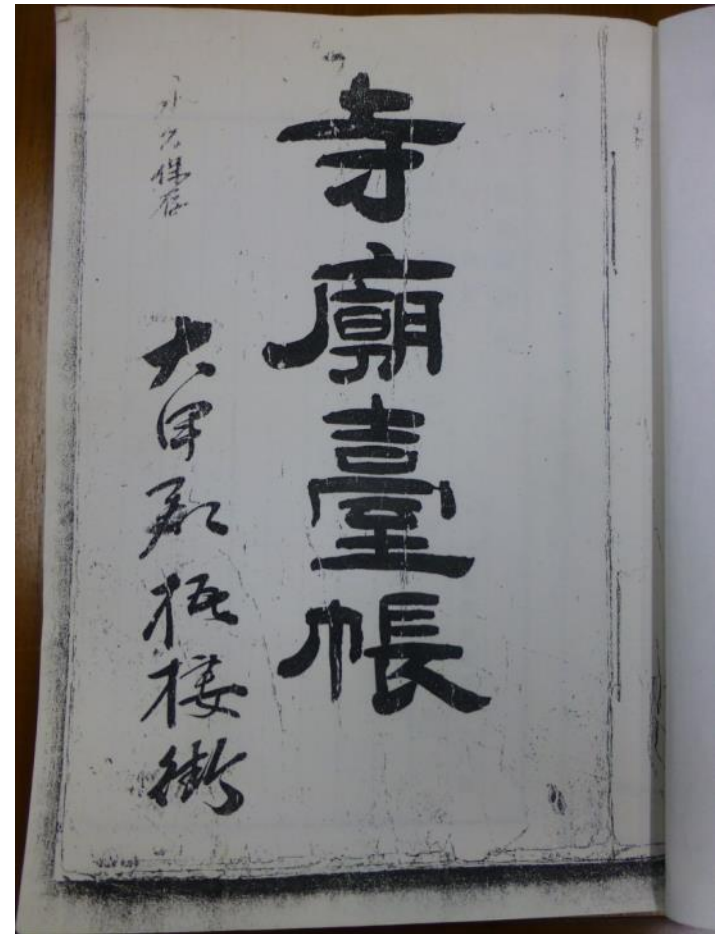 寺廟臺帳
大甲郡梧棲街
永久保存